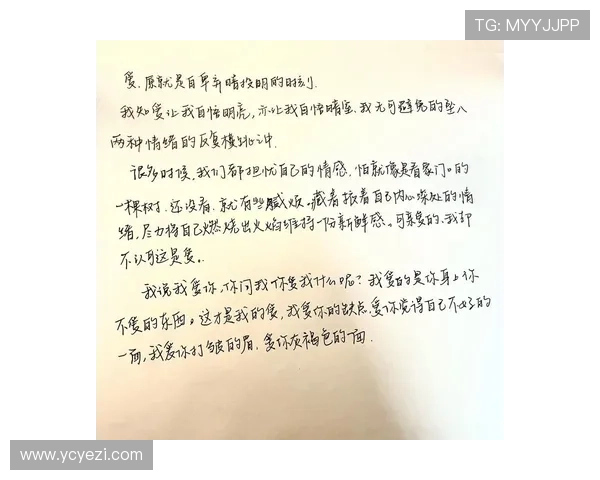 TG: MYYJJPP
爱，原就是自卑弃暗投明的时刻.
我知爱让我自悟明亮，亦让我自悟暗坠.我无可避免的坠入
两种情绪的反复横跳冲.
很多时候，我们都担忧自己的情感，怕就像是看家门口的
一棵树，还没看，就有些腻烦。藏着掖着自己内心深处的情
绪，尽力将自己燃烧出火焰维持一份新鲜感。可亲爱的，我却
不认可这是爱。
我说我爱你，你问我你爱我什么呢？我爱的是你身上你
不爱的东西。这才是我的爱，我爱你的缺点，爱你觉得自己不好的
一面，我爱你打皱的眉，爱你灰褐色的一面.
www.ycyezi.com